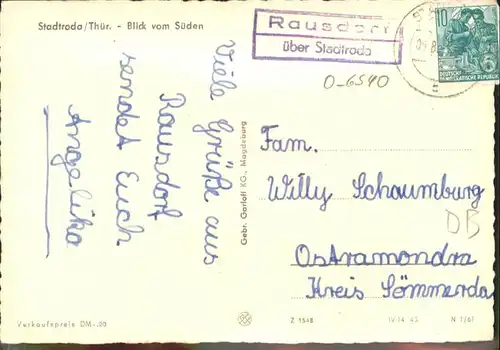 Stadtroda/Thür. - Blick vom Süden
Rausdorf
über Stadtroda
10
DEUTSCHE
DEMOKRATISCHE REPUBLIK
O-6540
Viele Grüße aus
Rausdorf
sendet Euch
Angelika
Gebr. Garloff KG., Magdeburg
Fam.
Willy Schaumburg
DB
Ostramondra
Kreis Sömmerda
Verkaufspreis DM -,20
Z 1548
IV-14-45
N 1261